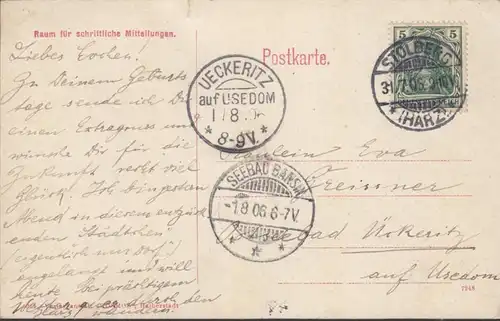 Raum für schriftliche Mitteilungen.
Postkarte.
5 5
STOLBERG
31.7.06
* (HARZ) *
UECKERITZ
auf USEDOM
1 8 06
* 8-9V. *
SEEBAD BANSIN
-1.8 06.6-7V.
* * *
Liebes Evchen!
Zu Deinem Geburts
tage sende ich Dir
einen Extragruss und
wünsche Dir für die
Zukunft recht viel
Glück. Ich bin gestern
Abend in diesem entzück
enden Städtchen
(eigentlich nur Dorf)
angelangt und will
heute bei prächtigem
Wetter durch den
Harz wandern.
Fräulein Eva
Seebad Ückeritz
auf Usedom
1948